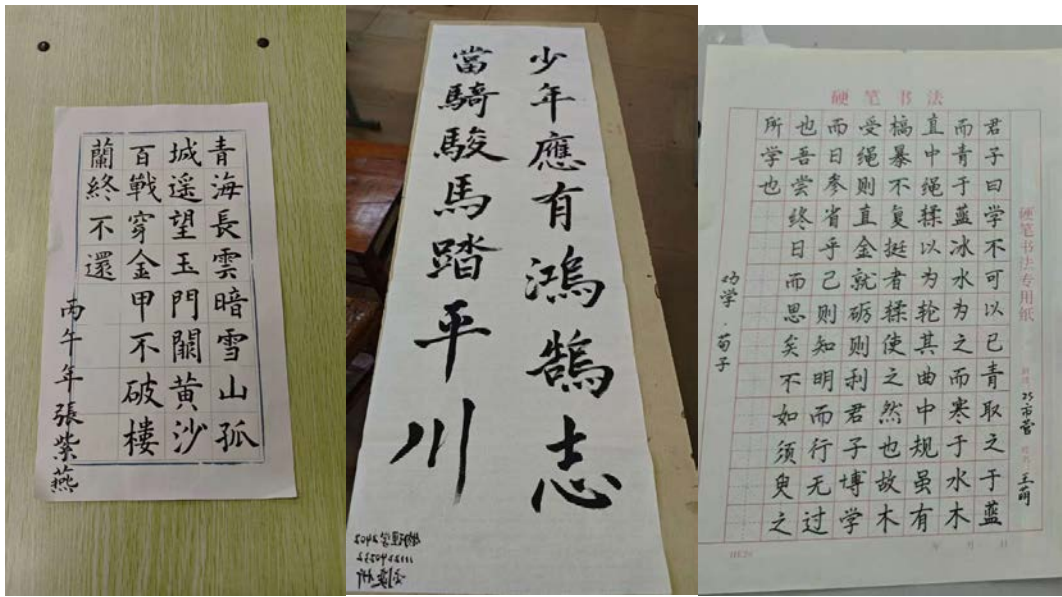 青海長雲暗雪山孤
城遥望玉門關黄沙
百戰穿金甲不破樓
蘭終不還
丙午年張紫燕
少年應有鴻鵠志
當騎駿馬踏平川
硬笔书法
君子曰学不可以已青取之于蓝
而青于蓝冰水为之而寒于水木
直中绳揉以为轮其曲中规虽有
槁暴不复挺者揉使之然也故木
受绳则直金就砺则利君子博学
而日参省乎己则知明而行无过
也吾尝终日而思矣不如须臾之
所学也
劝学·荀子
硬笔书法专用纸
王萌
年 月 日